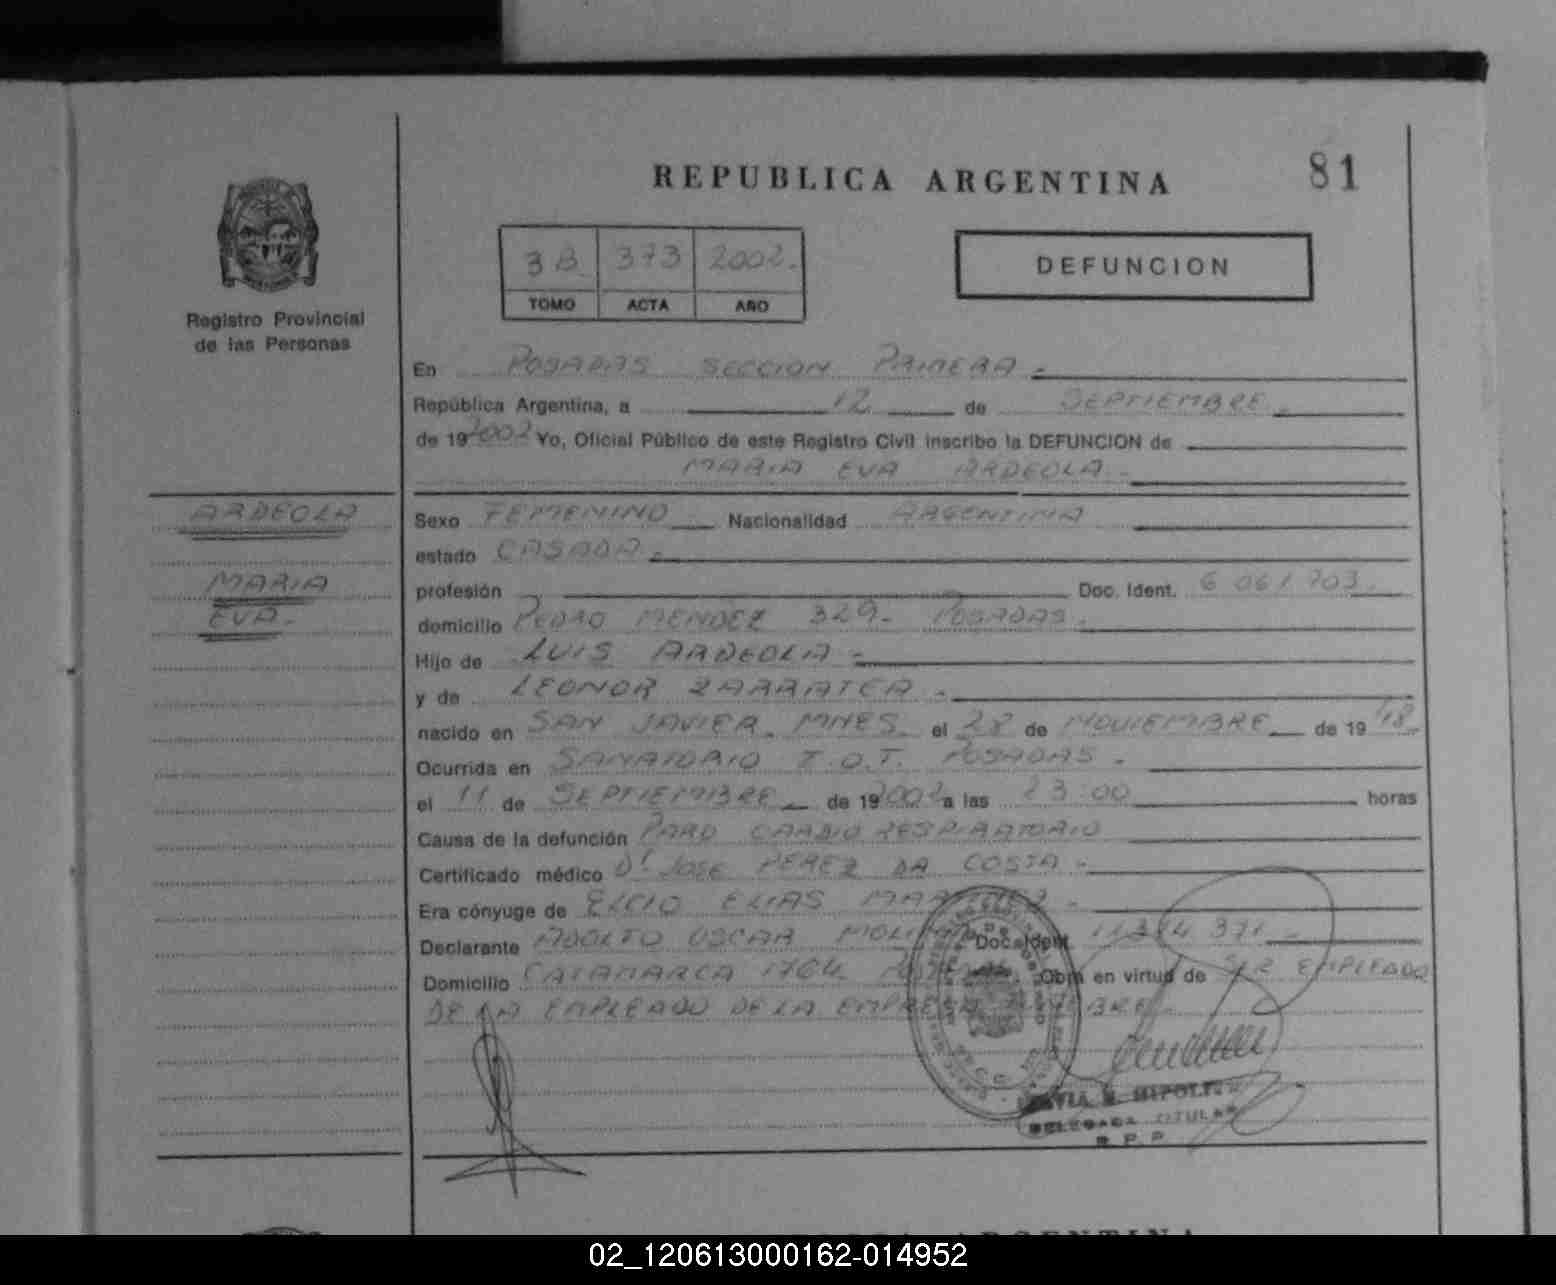 REPUBLICA ARGENTINA
81
3B 373 2002.
TOMO ACTA AÑO
DEFUNCION
Registro Provincial
de las Personas
En POSADAS SECCION PRIMERA.
República Argentina, a 12 de SEPTIEMBRE.
de 19 2002 Yo, Oficial Público de este Registro Civil inscribo la DEFUNCION de
MARIA EVA ARDEOLA.
ARDEOLA
MARIA
EVA.
Sexo FEMENINO Nacionalidad ARGENTINA
estado CASADA.
profesión Doc. Ident. 6 061 703.
domicilio PEDRO MENDEZ 329. POSADAS.
Hijo de LUIS ARDEOLA.
y de LEONOR ZARRATEA.
nacido en SAN JAVIER. MNES. el 28 de NOVIEMBRE de 19 18.
Ocurrida en SANATORIO I.O.T. POSADAS.
el 11 de SEPTIEMBRE de 19 2002 a las 23:00 horas
Causa de la defunción PARO CARDIO RESPIRATORIO
Certificado médico Dr JOSE PEREZ DA COSTA.
Era cónyuge de ELCIO ELIAS
Declarante ADOLFO OSCAR Doc. Ident.
Domicilio CATAMARCA 1764 Obra en virtud de SER EMPLEADO
DE LA EMPLEADO DE LA EMPRESA
HIPOLITO
DELEGADA TITULAR
R. P. P.
ARGENTINA
02_120613000162-014952